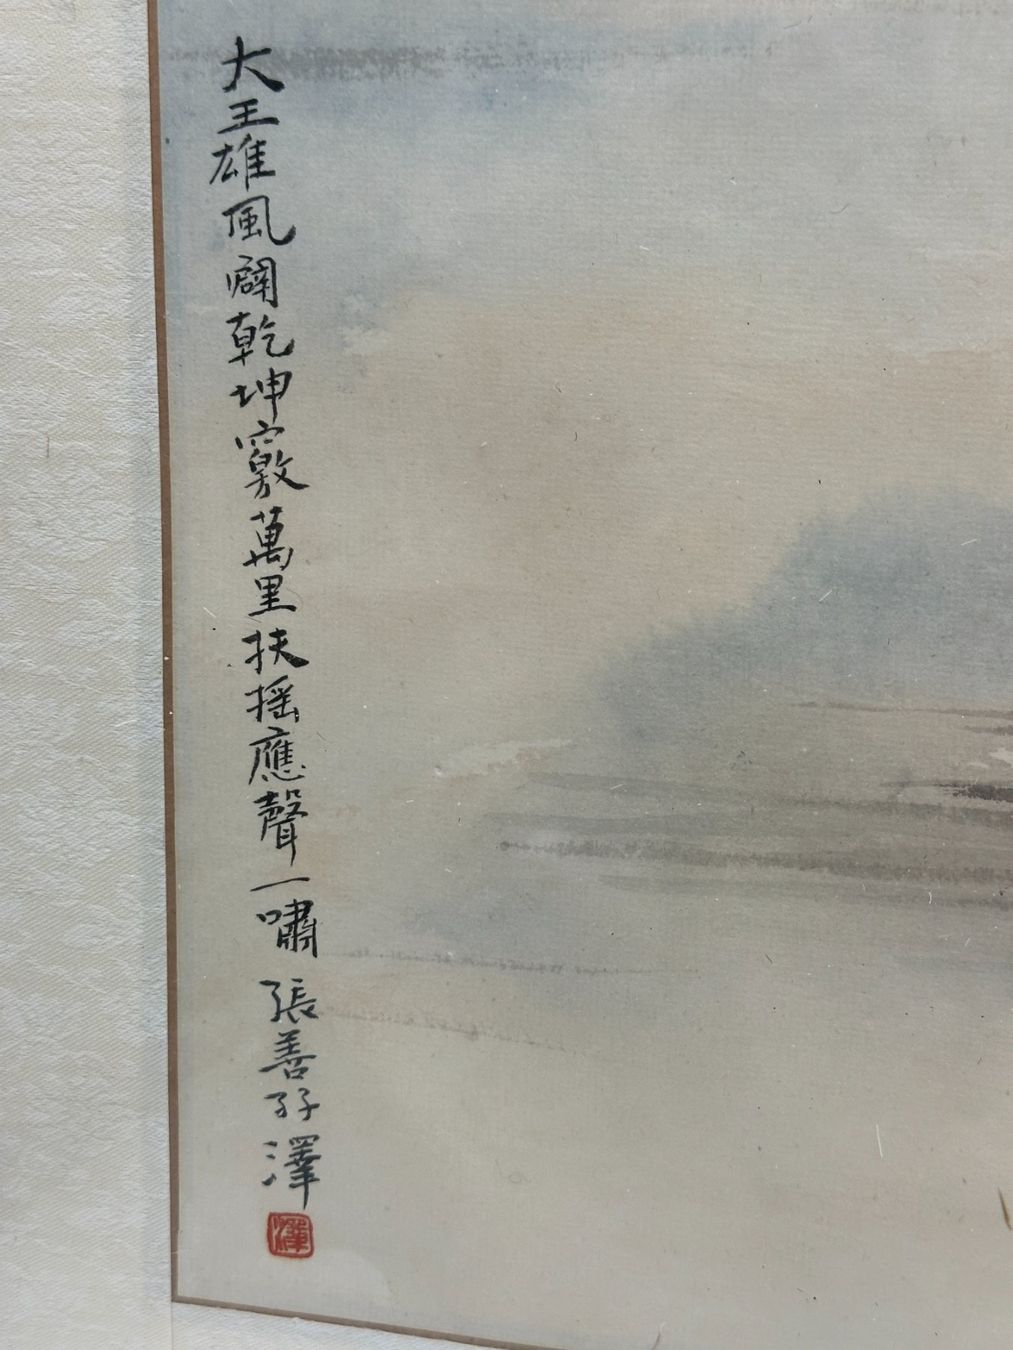 大王雄風闢乾坤竅萬里扶搖應聲一嘯 張善孖澤
澤